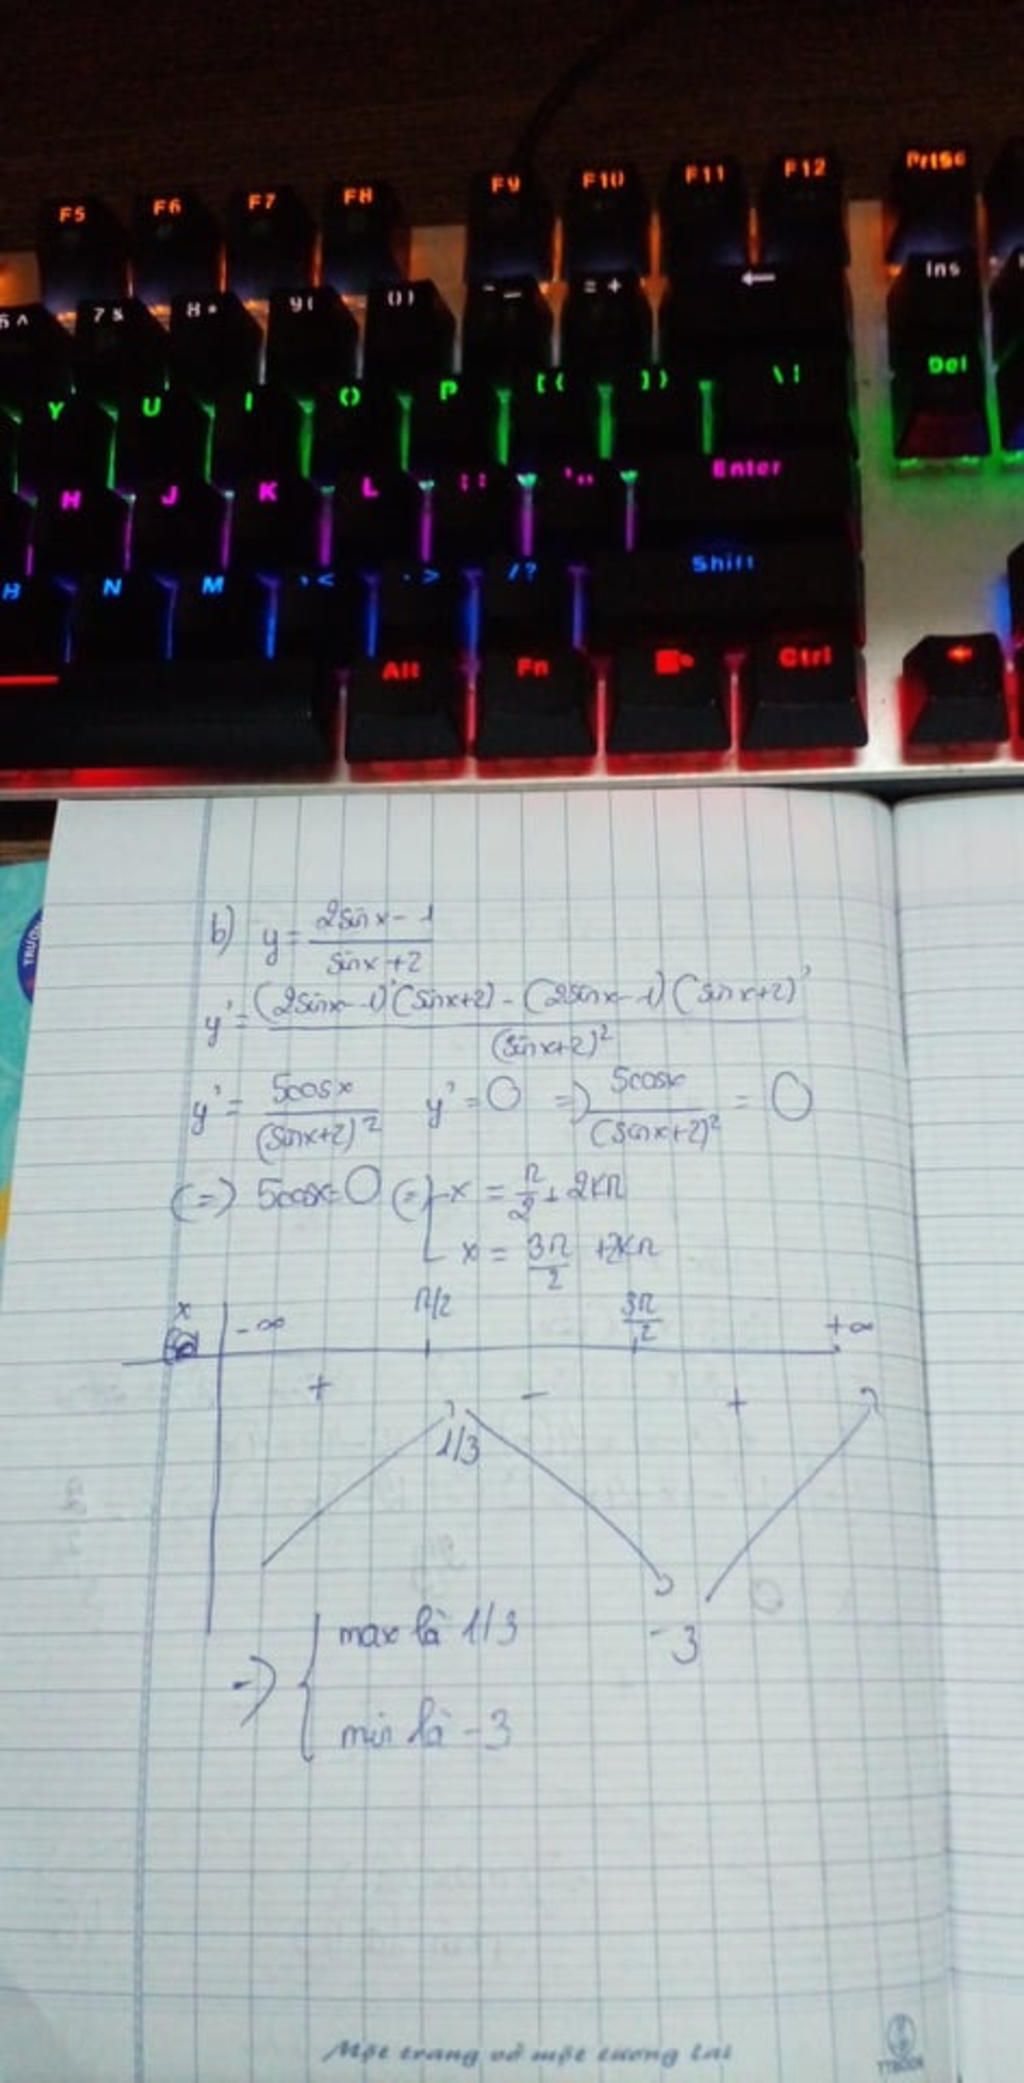 F5 F6 F7 F8 F9 F10 F11 F12 Prtsc
6 ^ 7 & 8 * 9 ( 0 ) - _ = + ← Ins
Y U I O P [ { ] } \ | Del
H J K L ; : ' " Enter
B N M , < . > / ? Shift
Alt Fn Ctrl
TRƯỜ
b) y = (2sinx - 1)/(sinx + 2)
y' = ((2sinx - 1)'(sinx+2) - (2sinx - 1)(sinx+2)')/(sinx+2)²
y' = 5cosx/(sinx+2)² y' = 0 => 5cosx/(sinx+2)² = 0
(=) 5cosx = 0 (=) [ x = π/2 + 2kπ
x = 3π/2 + 2kπ
x -∞ π/2 3π/2 +∞
+ - +
1/3
-3
=) { max là 1/3
min là -3
Một trang vở một tương lai